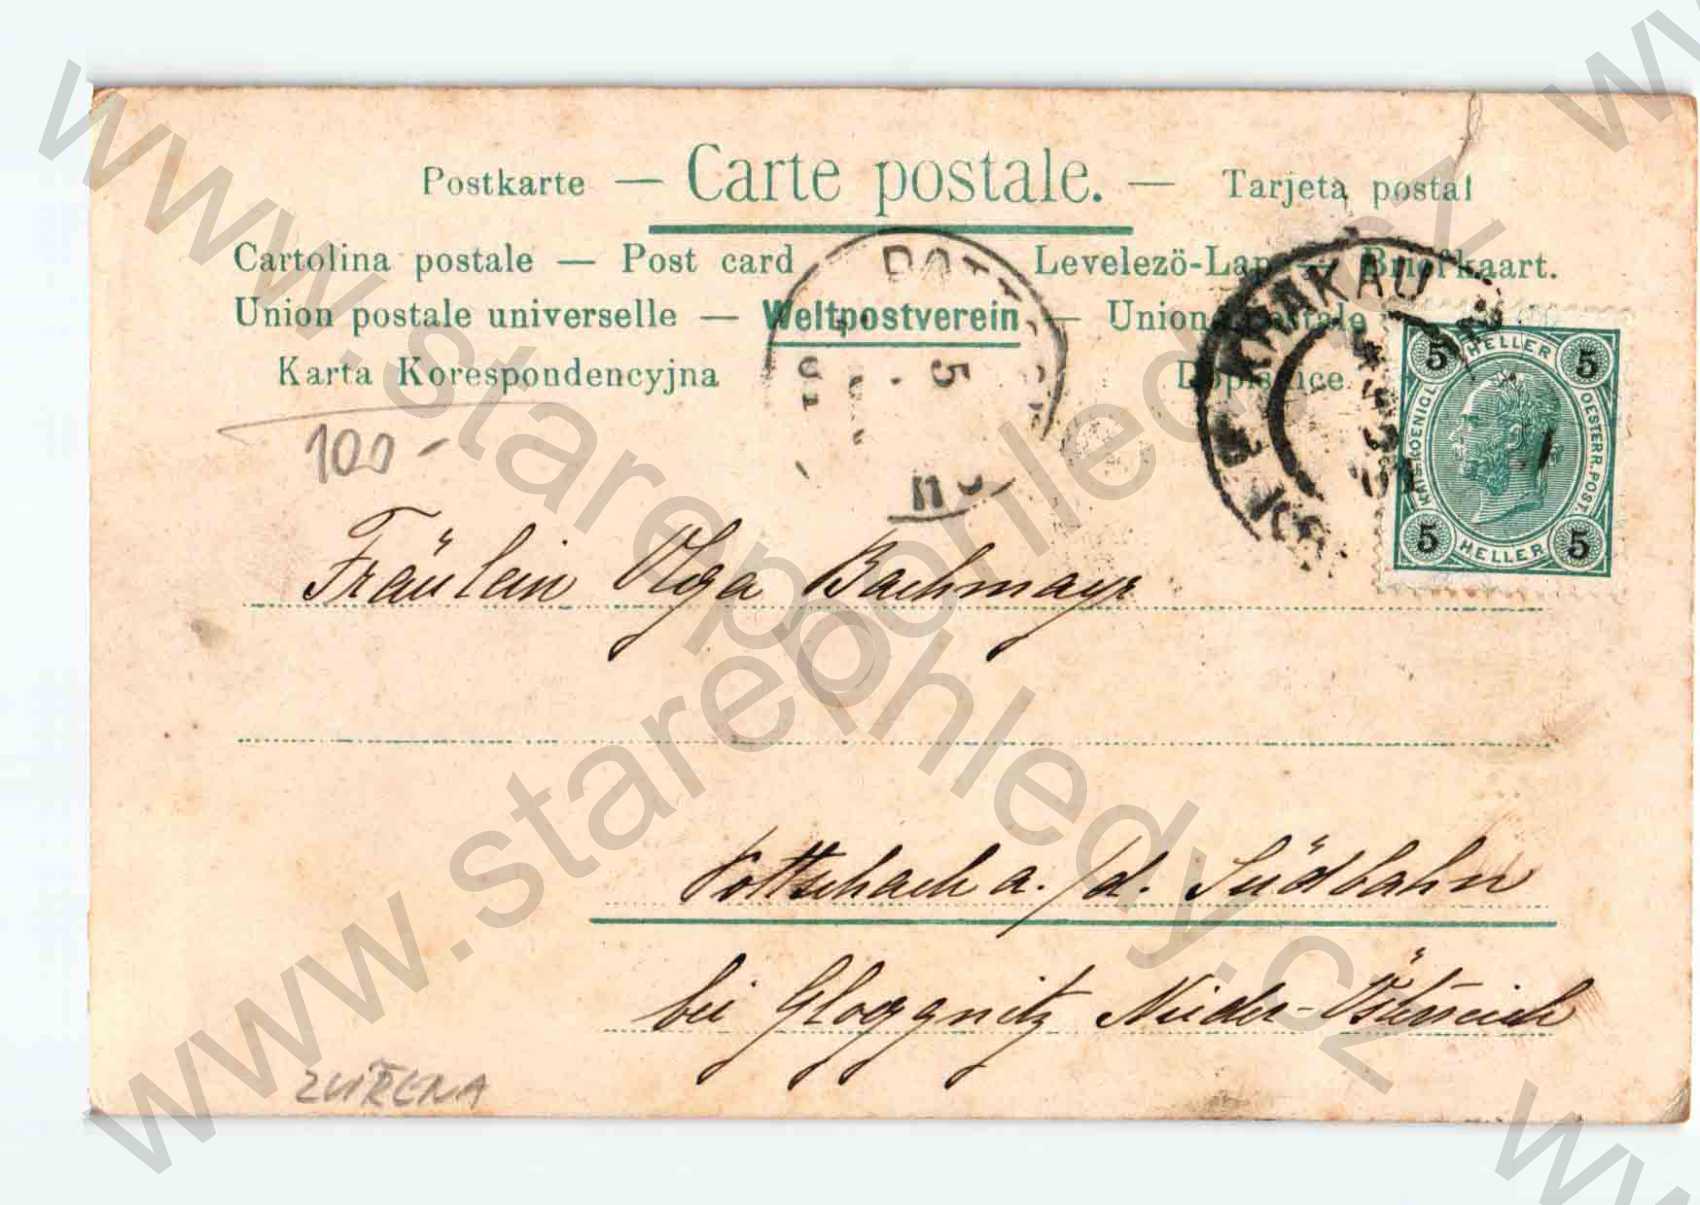 Postkarte — Carte postale. — Tarjeta postal
Cartolina postale — Post card Levelezö-Lap — Briefkaart.
Union postale universelle — Weltpostverein — Union postale
Karta Korespondencyjna Dopisnice
KRAKAU
5 HELLER 5
KAIS. KOENIGL. OESTERR. POST.
5 HELLER 5
100-
Fräulein Olga Bachmayr
Pottschach a./d. Südbahn
bei Gloggnitz Nieder-Österreich
ZVÍŘENA
www.starepohledy.cz
www.starepohledy.cz